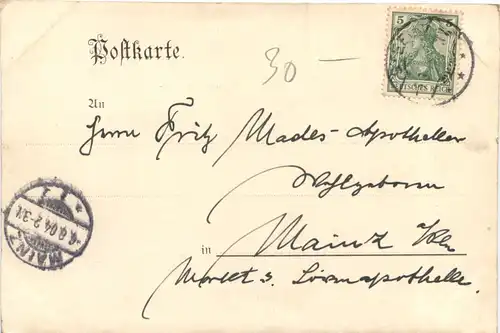 Postkarte.
30 —
5
DEUTSCHES REICH
An
Herrn Fritz Mades-Apotheker
Wohlgeboren
in Mainz a/Rh
Markt 3. Löwenapotheke.
MAINZ
2-3N.